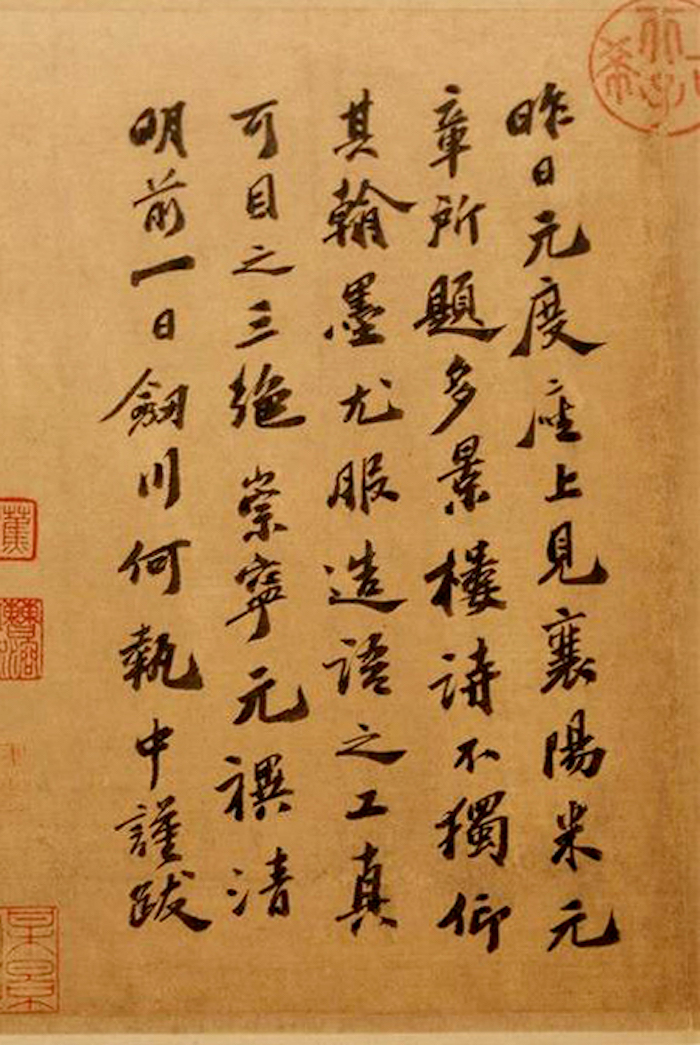 昨日元度座上見襄陽米元
章所題多景樓詩不獨仰
其翰墨尤服造語之工真
可目之三絶崇寧元禩清
明前一日劔川何執中謹跋